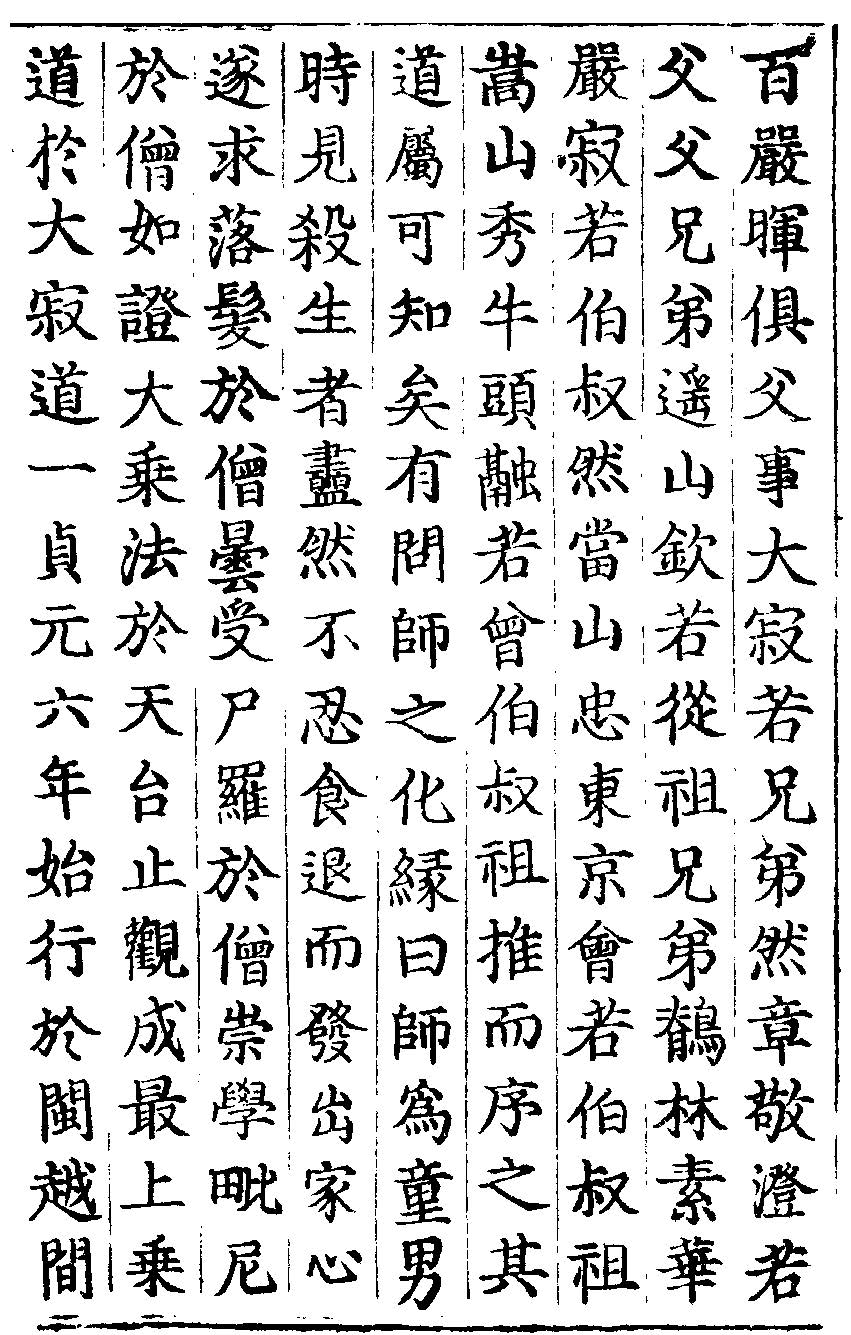 百巖暉俱父事大寂若兄弟然章敬澄若
父父兄弟遥山欽若從祖兄弟鶴林素華
嚴寂若伯叔然當山忠東京會若伯叔祖
嵩山秀牛頭融若曾伯叔祖推而序之其
道屬可知矣有問師之化縁曰師爲童男
時見殺生者盡然不忍食退而發出家心
遂求落髮於僧曇受尸羅於僧崇學毗尼
於僧如證大乘法於天台止觀成最上乘
道於大寂道一貞元六年始行於閩越間